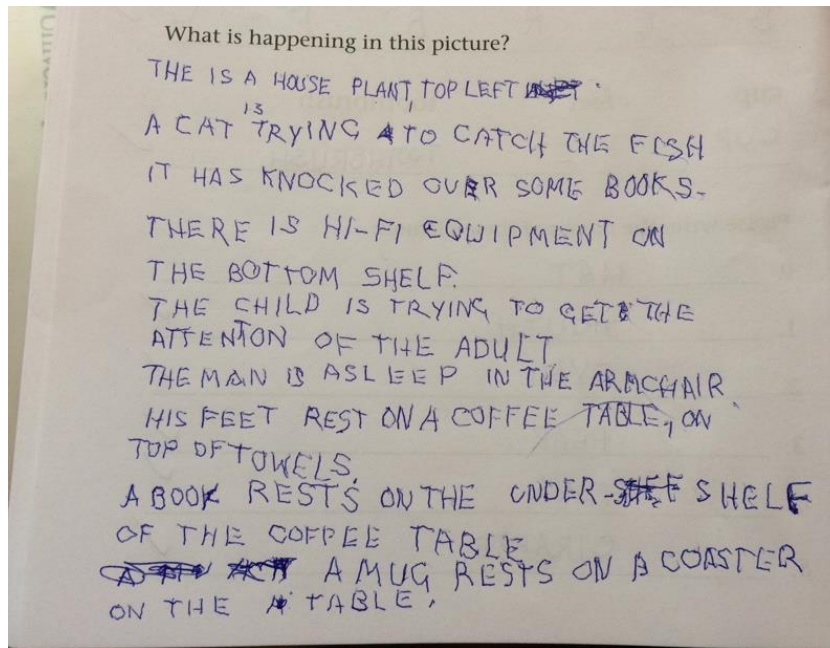 What is happening in this picture?
THE IS A HOUSE PLANT, TOP LEFT .
A CAT IS TRYING TO CATCH THE FISH
IT HAS KNOCKED OVER SOME BOOKS.
THERE IS HI-FI EQUIPMENT ON
THE BOTTOM SHELF.
THE CHILD IS TRYING TO GET THE
ATTENTION OF THE ADULT
THE MAN IS ASLEEP IN THE ARMCHAIR.
HIS FEET REST ON A COFFEE TABLE, ON
TOP OF TOWELS.
A BOOK RESTS ON THE UNDER- SHELF
OF THE COFFEE TABLE
A MUG RESTS ON A COASTER
ON THE TABLE.